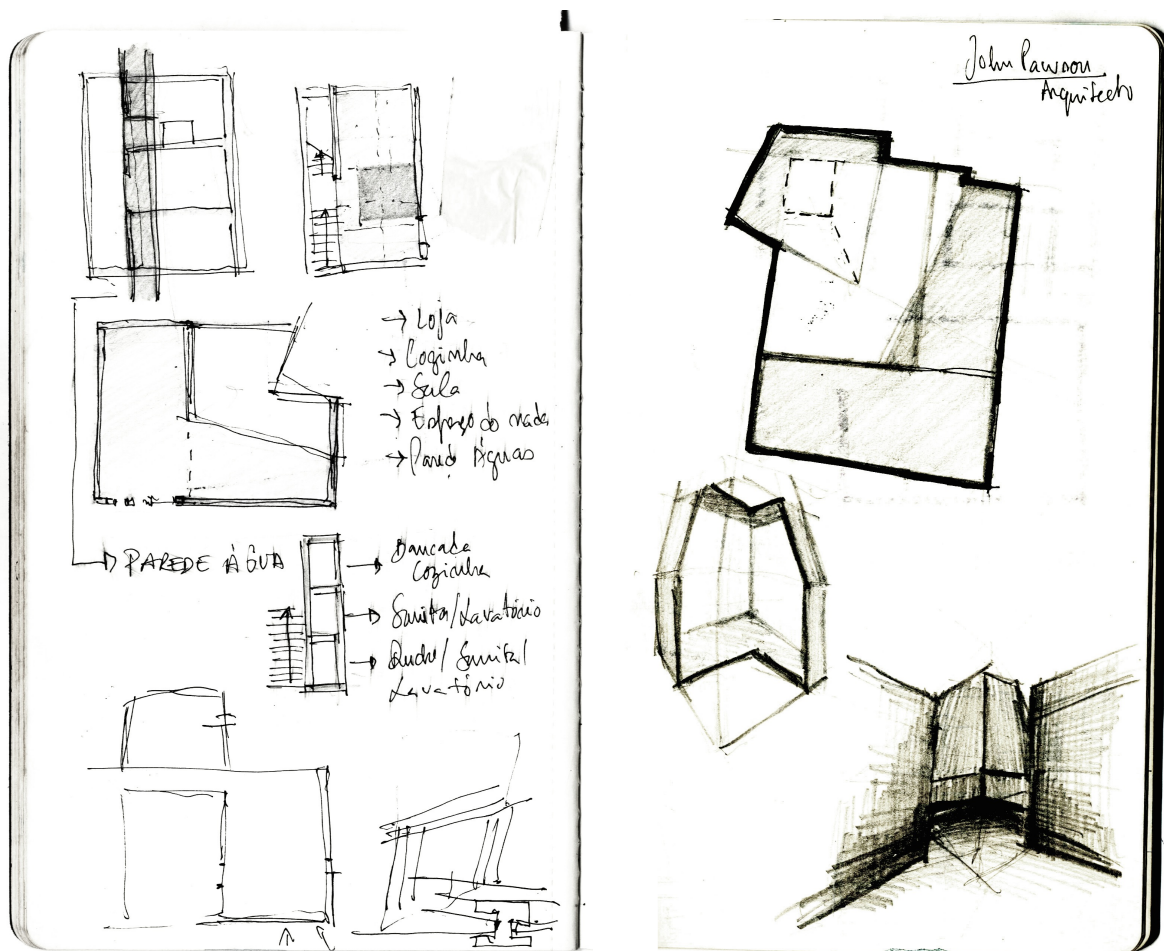 → Loja
→ Cozinha
→ Sala
→ Espaço do nada
→ Águas
→ PAREDE ÁGUA
→ Bancada
Cozinha
→ Sanita/Lavatório
→ Duche/Sanita/
Lavatório
John Pawson
Arquitecto